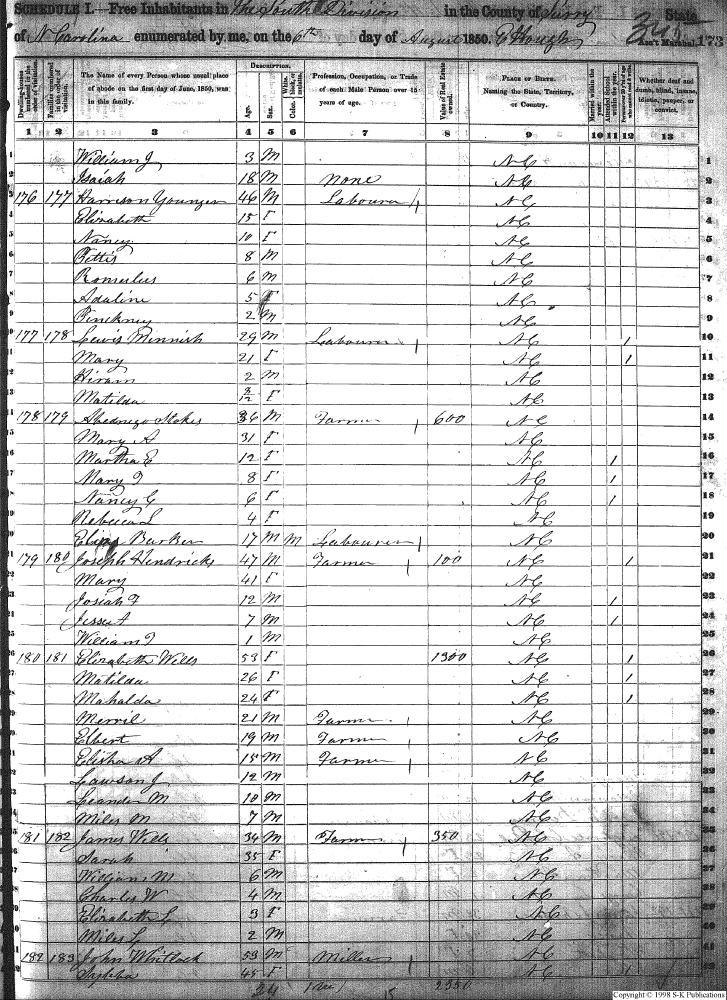 SCHEDULE I.—Free Inhabitants in The South Division in the County of Surry State
of N Carolina enumerated by me, on the 6th day of August 1850. Ass't Marshal. 173
Dwelling-houses numbered in the order of visitation.
Families numbered in the order of visitation.
The Name of every Person whose usual place of abode on the first day of June, 1850, was in this family.
DESCRIPTION.
Age.
Sex.
Color, White, black, or mulatto.
Profession, Occupation, or Trade of each Male Person over 15 years of age.
Value of Real Estate owned.
PLACE OF BIRTH. Naming the State, Territory, or Country.
Married within the year.
Attended School within the year.
Whether deaf and dumb, blind, insane, idiotic, pauper, or convict.
1 2 3 4 5 6 7 8 9 10 11 12 13
1 William J 3 M NC 1
2 Isaiah 18 M None NC 2
3 176 177 Harrison Younger 46 M Labourer 1 NC 3
4 Elizabeth 15 F NC 4
5 Nancy 10 F NC 5
6 Pettis 8 M NC 6
7 Romulus 6 M NC 7
8 Adaline 5 F NC 8
9 Pinckney 2 M NC 9
10 177 178 Lewis Minnish 29 M Labourer 1 NC 1 10
11 Mary 21 F NC 1 11
12 Hiram 2 M NC 12
13 Matilda NC 13
14 178 179 Abednego Stokes 36 M Farmer 1 600 NC 14
15 Mary A 31 F NC 15
16 Martha E 12 F NC 1 16
17 Mary J 8 F NC 1 17
18 Nancy C 6 F NC 1 18
19 Rebecca L 4 F NC 19
20 Barker 17 M M Labourer 1 NC 20
21 179 180 Joseph Hendricks 47 M Farmer 1 100 NC 1 21
22 Mary 41 F NC 22
23 Josiah F 12 M NC 1 23
24 Jesse A 7 M NC 1 24
25 William J 1 M NC 25
26 180 181 Elizabeth Wells 53 F 1300 NC 1 26
27 Matilda 26 F NC 1 27
28 Mahalda 24 F NC 1 28
29 Merril 21 M Farmer 1 NC 29
30 Elbert 19 M Farmer 1 NC 30
31 Elisha A 15 M Farmer 1 NC 31
32 Lawson J 12 M NC 32
33 Leander M 10 M NC 33
34 Miles M 7 M NC 34
35 181 182 James Wells 34 M Farmer 1 350 NC 35
36 Sarah 35 F NC 36
37 William M 6 M NC 37
38 Charles W 4 M NC 38
39 Elizabeth L 3 F NC 39
40 Miles L 2 M NC 40
41 182 183 John Whitlock 53 M Miller 1 NC 41
42 45 F NC 1 42
24 2350
Copyright © 1998 S-K Publications